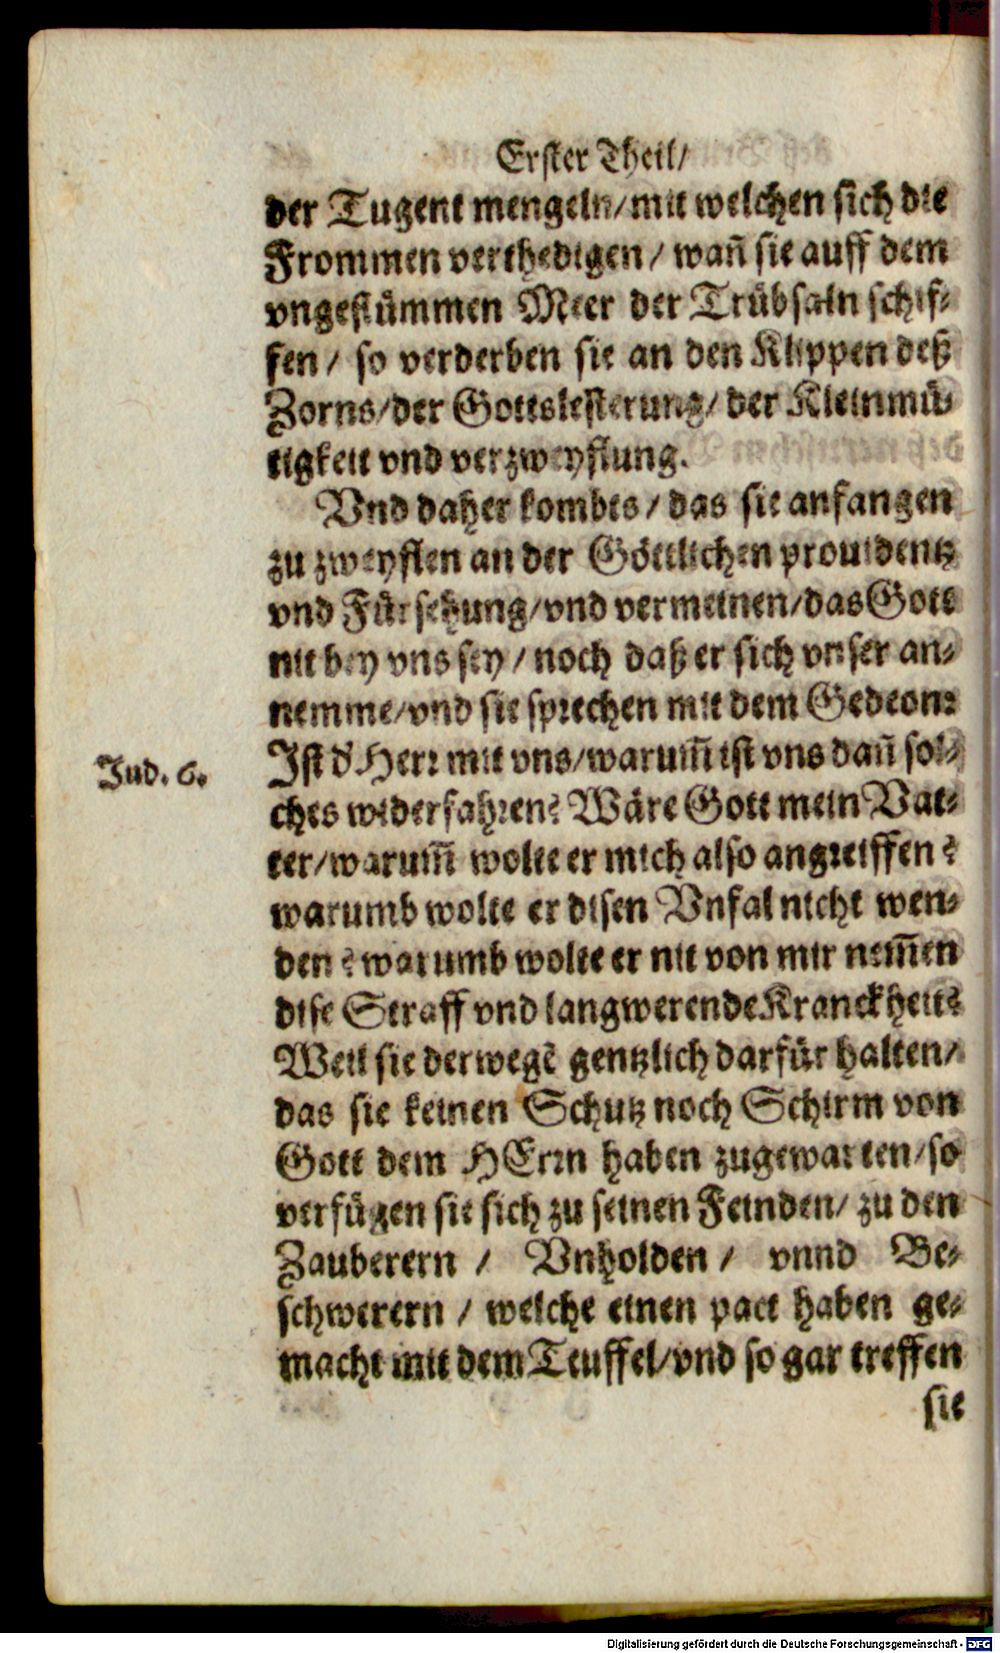 Erster Theil/
der Tugent mengeln/mit welchen sich die
Frommen verthedigen/ wañ sie auff dem
vngestümmen Meer der Trübsaln schif-
fen/ so verderben sie an den Klippen deß
Zorns/der Gottslesterung/ der Kleinmü-
tigkeit vnd verzweyflung.
Vnd daher kombts/ das sie anfangen
zu zweyflen an der Göttlichen prouidentz
vnd Fürsehung/vnd vermeinen/das Gott
nit bey vns sey/ noch daß er sich vnser an-
nemme/vnd sie sprechen mit dem Gedeon:
Jud. 6.
Ist d' Herr mit vns/warum̃ ist vns dañ sol-
ches widerfahren? Wäre Gott mein Vat-
ter/warum̃ wolte er mich also angreiffen?
warumb wolte er disen Vnfal nicht wen-
den? warumb wolte er nit von mir nem̃en
dise Straff vnd langwerende Kranckheit?
Weil sie derwegẽ gentzlich darfür halten/
das sie keinen Schutz noch Schirm von
Gott dem HErrn haben zugewarten/so
verfügen sie sich zu seinen Feinden/ zu den
Zauberern / Vnholden / vnnd Be-
schwerern / welche einen pact haben ge-
macht mit dem Teuffel/vnd so gar treffen
sie
Digitalisierung gefördert durch die Deutsche Forschungsgemeinschaft - DFG